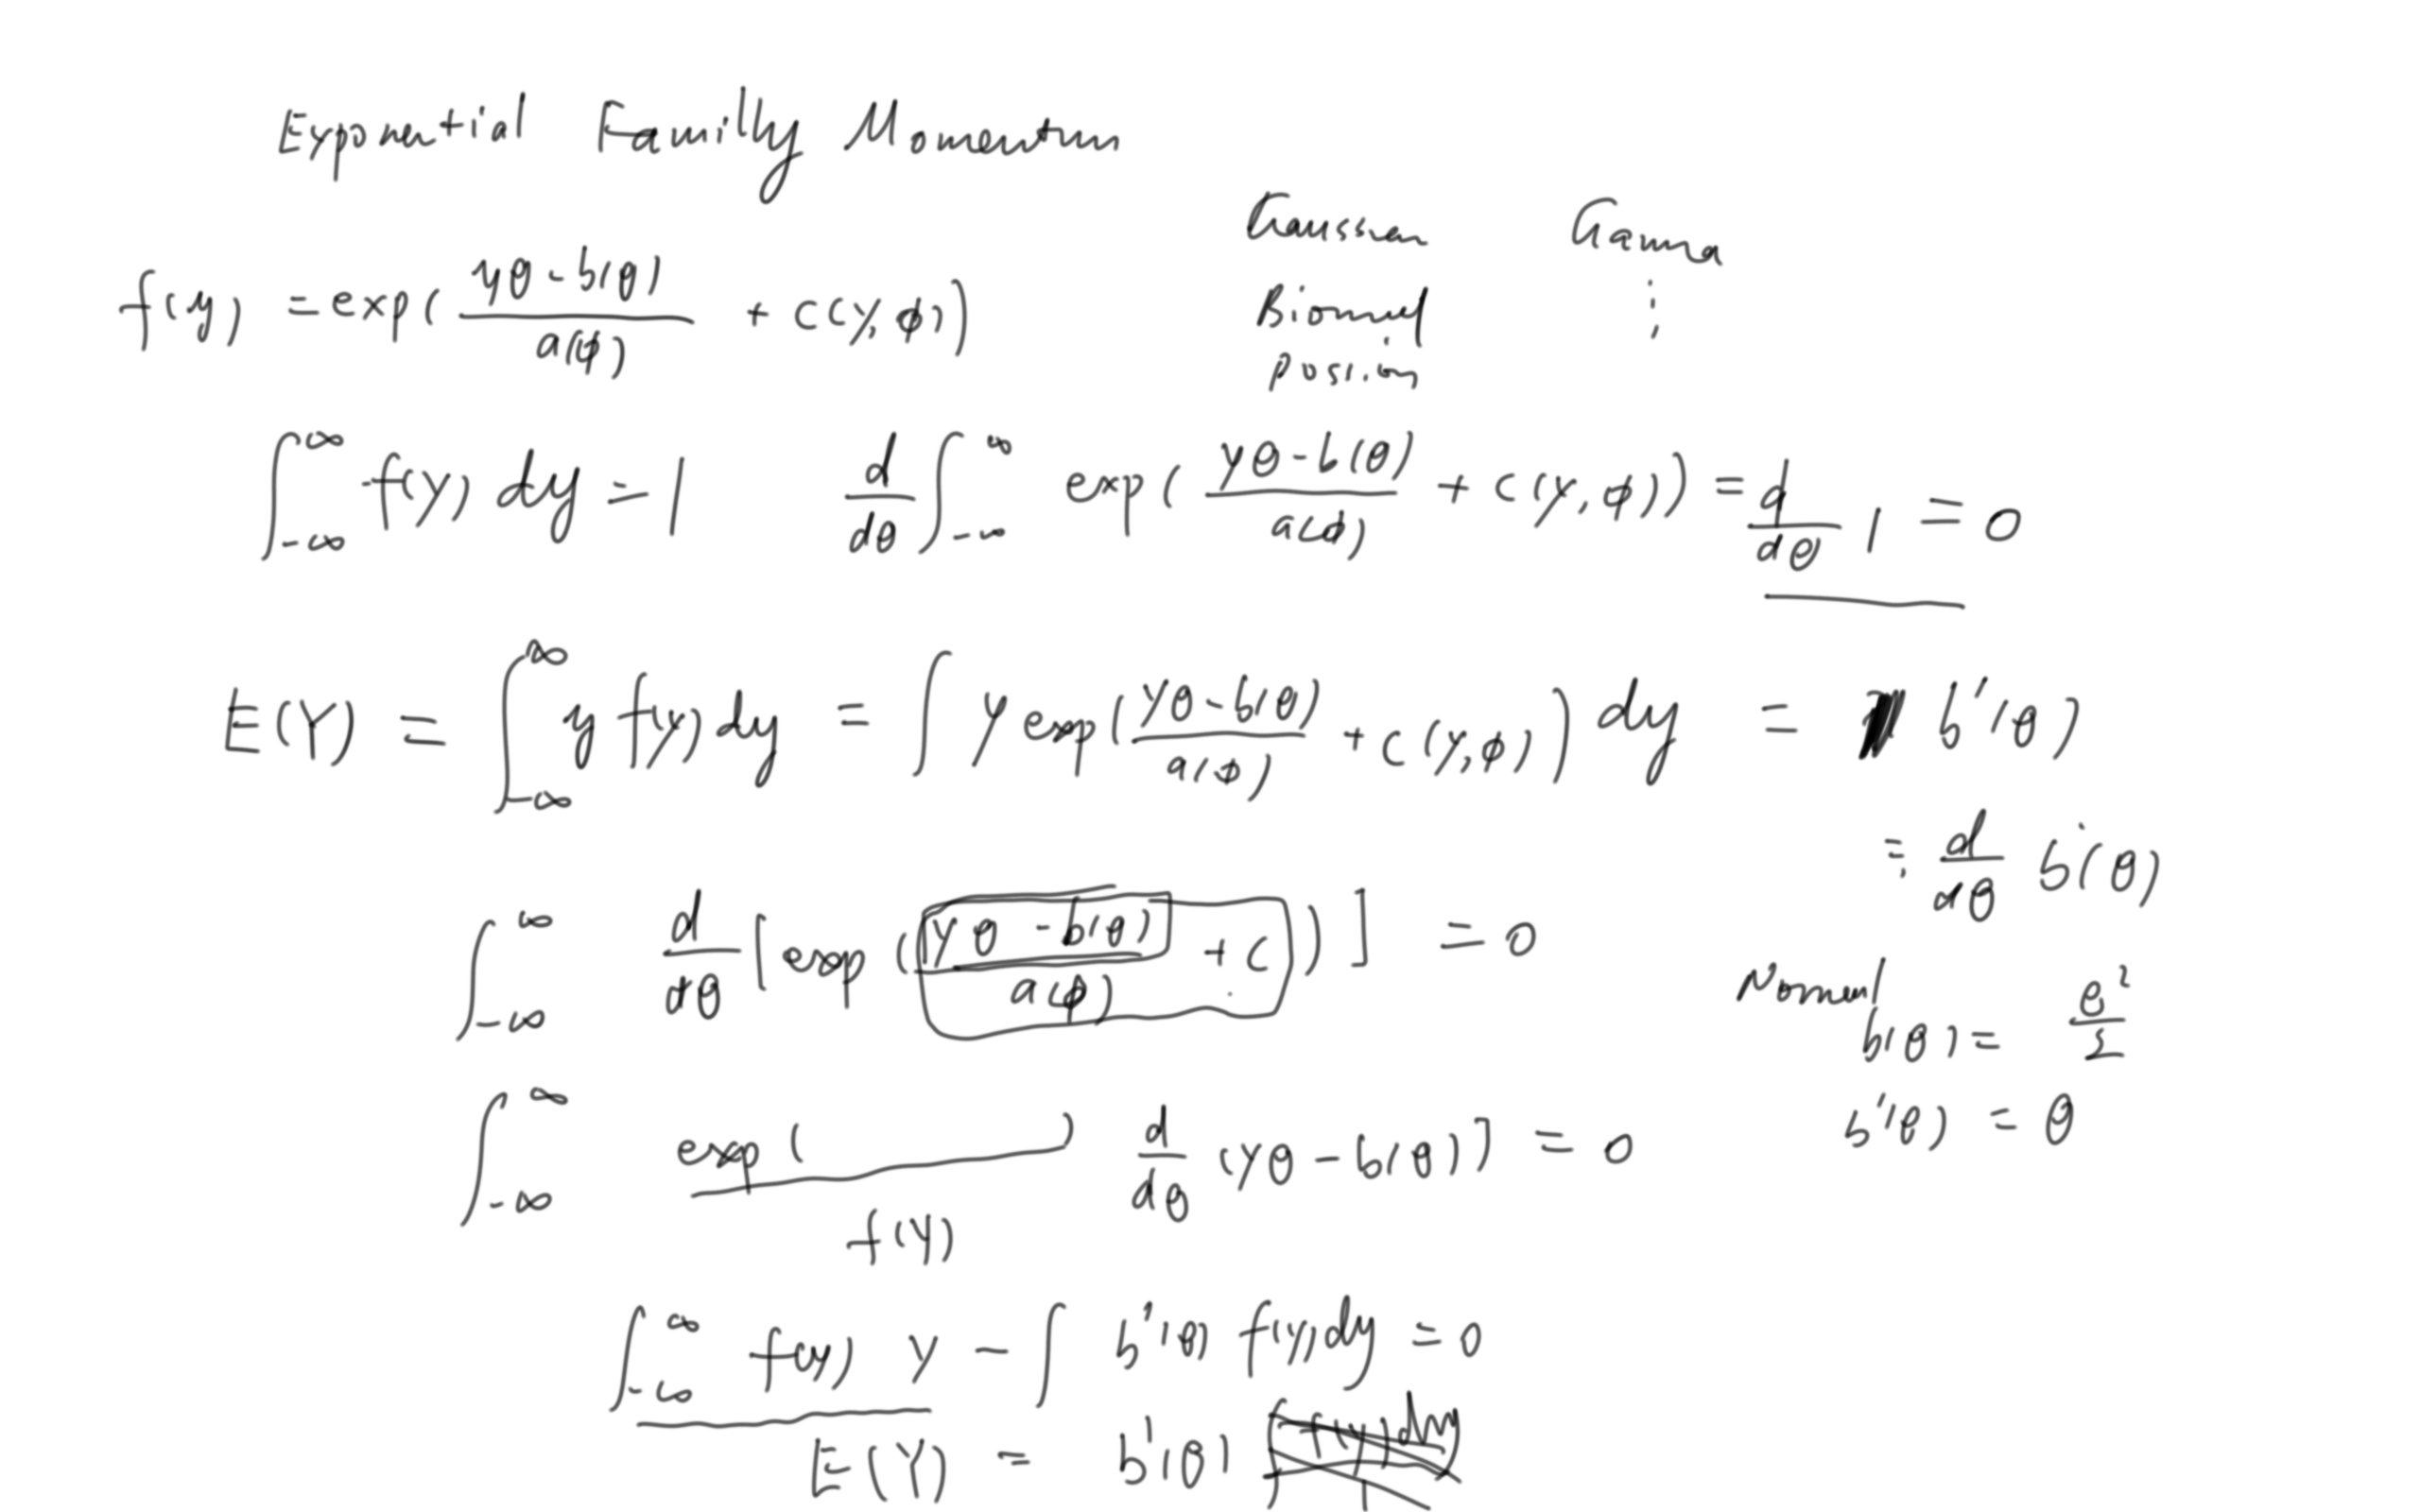 Exponential Familly Momentum
Gaussian Gamma
f(y) = exp( (yθ - b(θ)) / a(φ) + c(y,φ) )
Binomial ⋮
∫_{-∞}^{∞} f(y) dy = 1 d/dθ ∫_{-∞}^{∞} exp( (yθ - b(θ)) / a(φ) + c(y,φ) ) = d/dθ 1 = 0
E(Y) = ∫_{-∞}^{∞} y f(y) dy = ∫ y exp( (yθ - b(θ)) / a(φ) + c(y,φ) ) dy = b'(θ)
= d/dθ b(θ)
∫_{-∞}^{∞} d/dθ [ exp( (yθ - b(θ)) / a(φ) + c ) ] = 0
Normal
b(θ) = θ²/2
∫_{-∞}^{∞} exp( ) d/dθ (yθ - b(θ)) ] = 0
b'(θ) = θ
f(y)
∫_{-∞}^{∞} f(y) y - ∫ b'(θ) f(y) dy = 0
E(Y) = b'(θ) ∫ f(y) dy